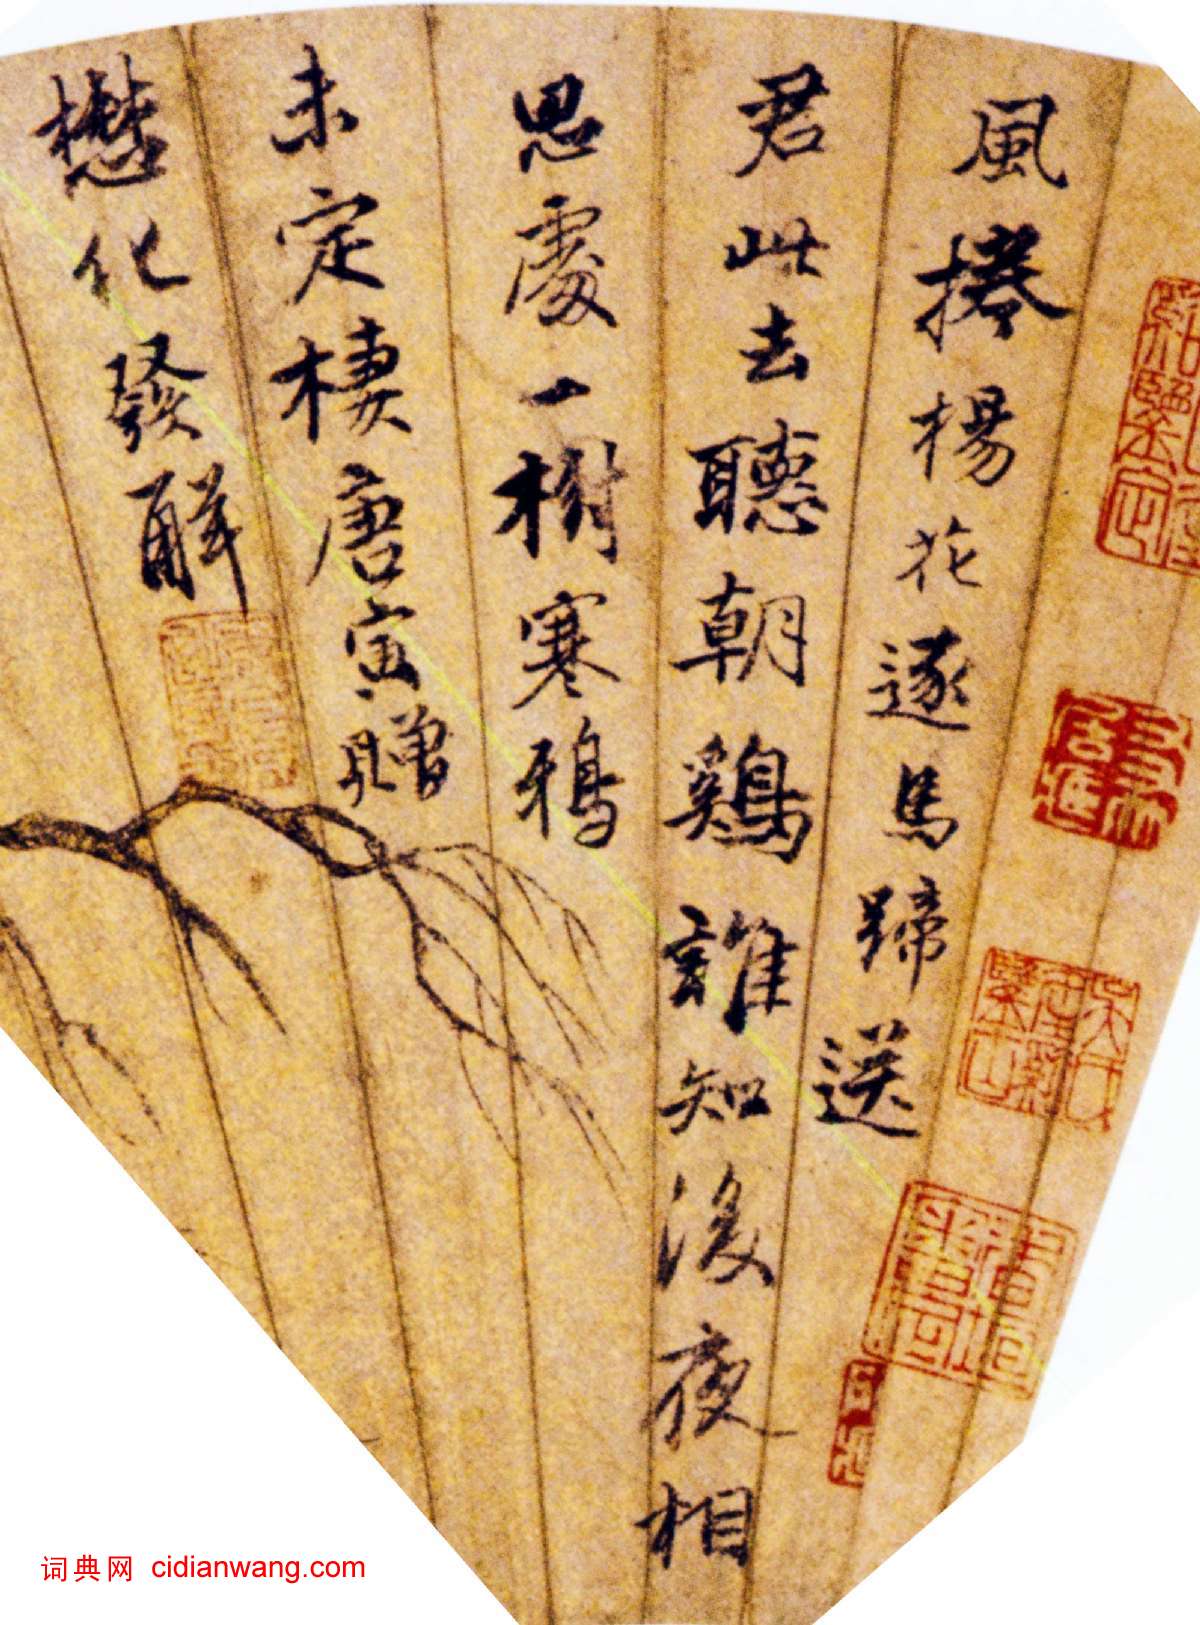 風捲楊花逐馬蹄送
君此去聽朝鷄誰知後夜相
思處一樹寒鴉
未定棲唐寅贈
懋化發解
词典网 cidianwang.com